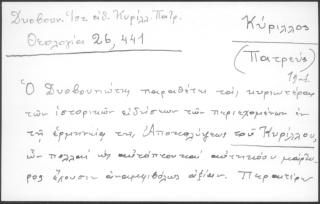 Δυοβουν. Ἱστ. εἰδ. Κυρίλλ. Πατρ.
Θεολογία 26, 441
Κύριλλος
(Πατρεύς)
Ὁ Δυοβουνιώτης παραθέτει τὰς κυριωτέρας
τῶν ἱστορικῶν εἰδήσεων τῶν περιεχομένων ἐν
τῇ ἑρμηνείᾳ τῆς Ἀποκαλύψεως τοῦ Κυρίλλου,
ὧν πολλαὶ ὡς αὐτόπτου καὶ αὐτηκόου μάρτυ-
ρος ἔχουσιν ἀναμφιβόλως ἀξίαν. Περαιτέρω